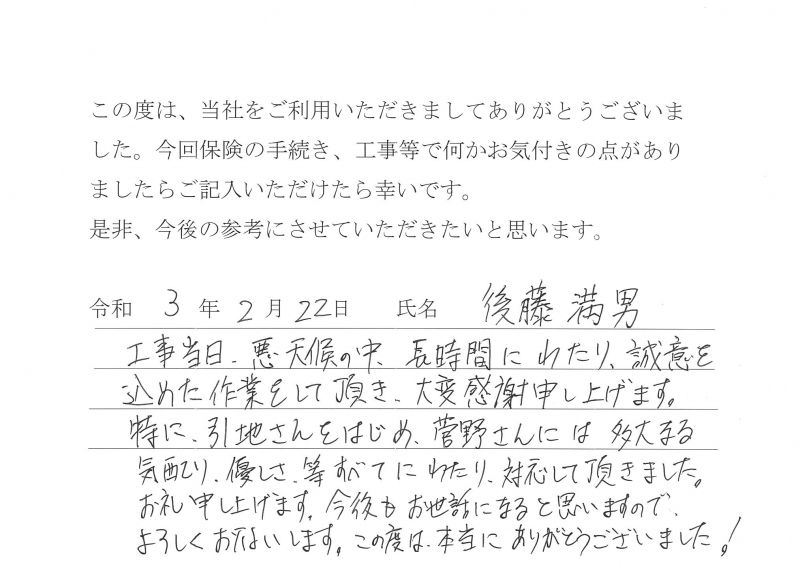 この度は、当社をご利用いただきましてありがとうございま
した。今回保険の手続き、工事等で何かお気付きの点があり
ましたらご記入いただけたら幸いです。
是非、今後の参考にさせていただきたいと思います。
令和 3 年 2 月 22日 氏名 後藤満男
工事当日、悪天候の中、長時間にわたり、誠意を
込めた作業をして頂き、大変感謝申し上げます。
特に、引地さんをはじめ、菅野さんには多大なる
気配り、優しさ、等すべてにわたり、対応して頂きました。
お礼申し上げます。今後もお世話になると思いますので、
よろしくお願いします。この度は、本当にありがとうございました!